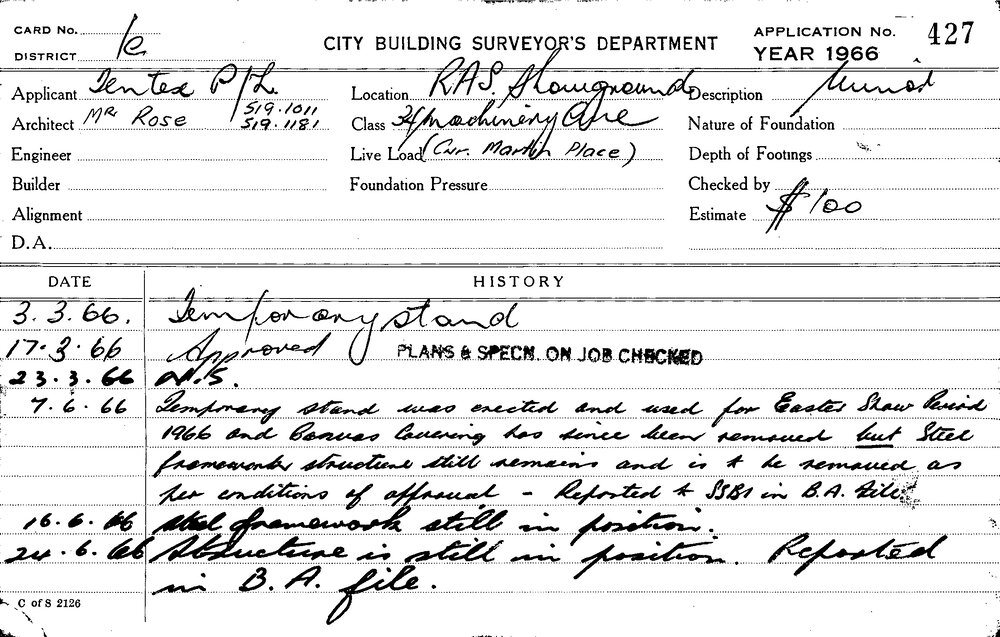 CARD No. 1c
DISTRICT
CITY BUILDING SURVEYOR'S DEPARTMENT
APPLICATION No. 427
YEAR 1966
Applicant Tentex P/L. 519.1011
Location RAS. Showground
Description Minor
Architect Mr Rose 519.1181
Class Machinery Ave
Nature of Foundation
Engineer
Live Load (Cnr. Martin Place)
Depth of Footings
Builder
Foundation Pressure
Checked by
Alignment
Estimate $100
D.A.
DATE HISTORY
3.3.66. Temporary stand
17.3.66 Approved PLANS & SPECN. ON JOB CHECKED
23.3.66 N.S.
7.6.66 Temporary stand was erected and used for Easter Show Period
1966 and Canvas Covering has since been removed but Steel
framework structure still remains and is to be removed as
per conditions of approval - Reported to SSBI in B.A. File
16.6.66 Steel framework still in position.
24.6.66 Structure is still in position. Reported
in B.A. file.
C of S 2126